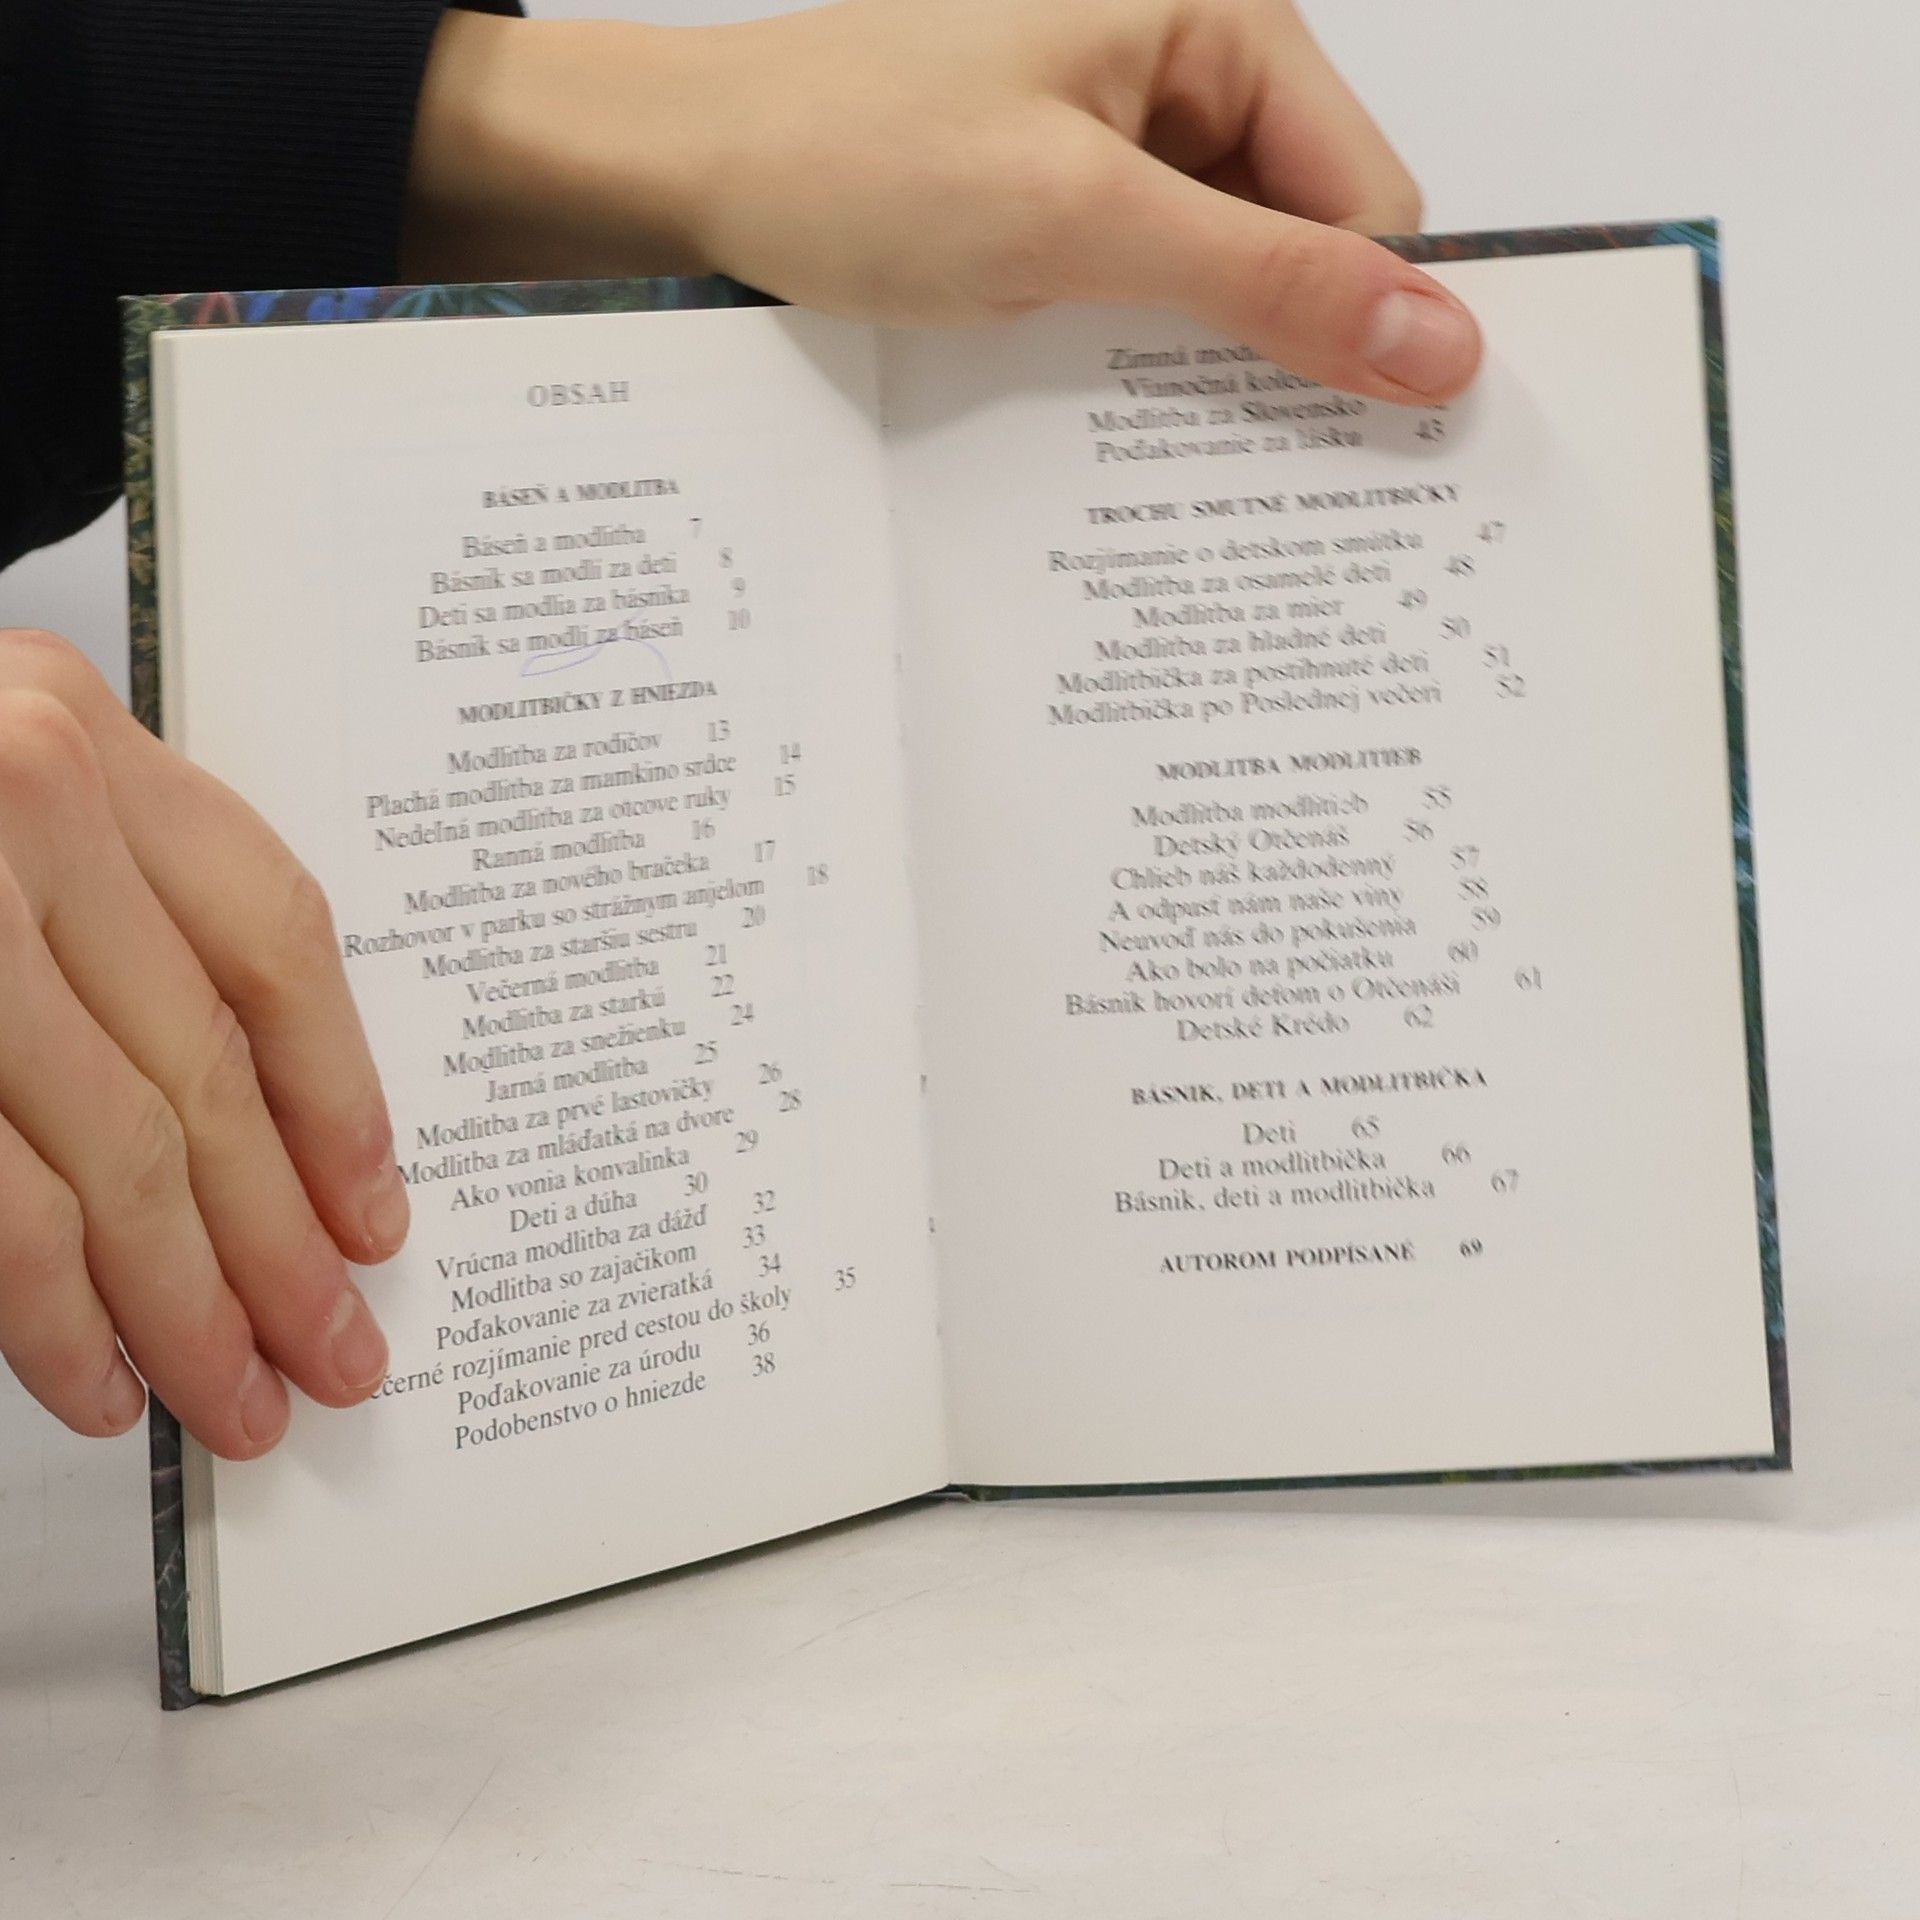 OBSAH
BÁSEŇ A MODLITBA
Báseň a modlitba 7
Básnik sa modlí za deti 8
Deti sa modlia za básnika 9
Básnik sa modlí za báseň 10
MODLITBIČKY Z HNIEZDA
Modlitba za rodičov 13
Plachá modlitba za mamkino srdce 14
Nedeľná modlitba za otcove ruky 15
Ranná modlitba 16
Modlitba za nového bračeka 17
Rozhovor v parku so strážnym anjelom 18
Modlitba za staršiu sestru 20
Večerná modlitba 21
Modlitba za starkú 22
Modlitba za snežienku 24
Jarná modlitba 25
Modlitba za prvé lastovičky 26
Modlitba za mláďatká na dvore 28
Ako vonia konvalinka 29
Deti a dúha 30
Vrúcna modlitba za dážď 32
Modlitba so zajačikom 33
Poďakovanie za zvieratká 34
rozjímanie pred cestou do školy 35
Poďakovanie za úrodu 36
Podobenstvo o hniezde 38
Zimná
Vianočná
Modlitba za Slovensko
Poďakovanie za lásku 43
TROCHU SMUTNÉ MODLITBIČKY
Rozjímanie o detskom smútku 47
Modlitba za osamelé deti 48
Modlitba za mier 49
Modlitba za hladné deti 50
Modlitbička za postihnuté deti 51
Modlitbička po Poslednej večeri 52
MODLITBA MODLITIEB
Modlitba modlitieb 55
Detský Otčenáš 56
Chlieb náš každodenný 57
A odpusť nám naše viny 58
Neuvoď nás do pokušenia 59
Ako bolo na počiatku 60
Básnik hovorí deťom o Otčenáši 61
Detské Krédo 62
BÁSNIK, DETI A MODLITBIČKA
Deti 65
Deti a modlitbička 66
Básnik, deti a modlitbička 67
AUTOROM PODPÍSANÉ 69